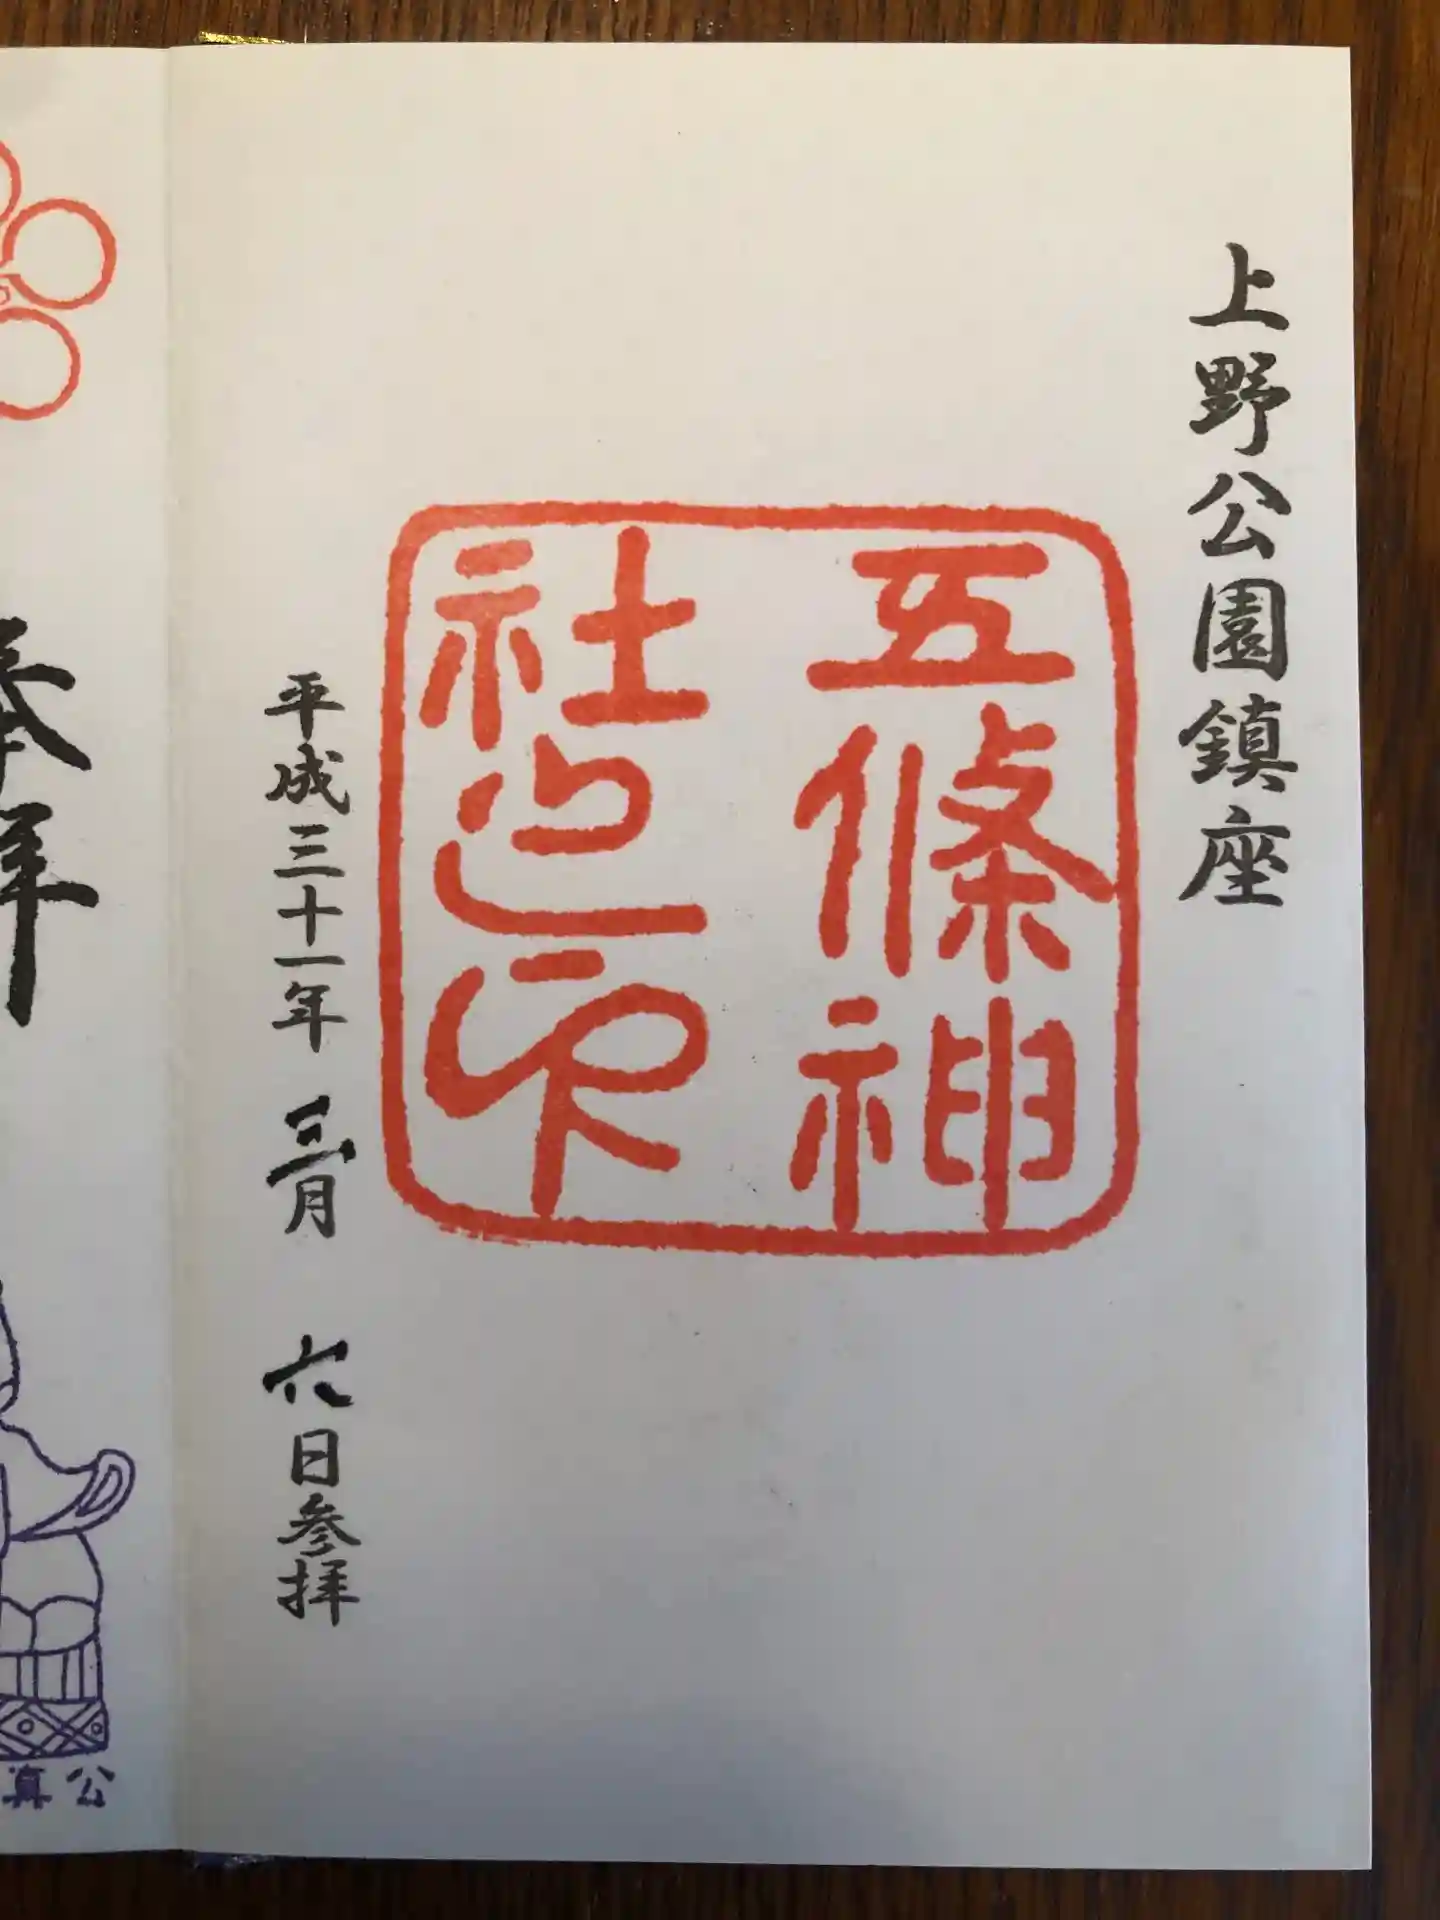 上野公園鎮座
五條神
社之印
平成三十一年 三月 六日参拝
奉拝
公真